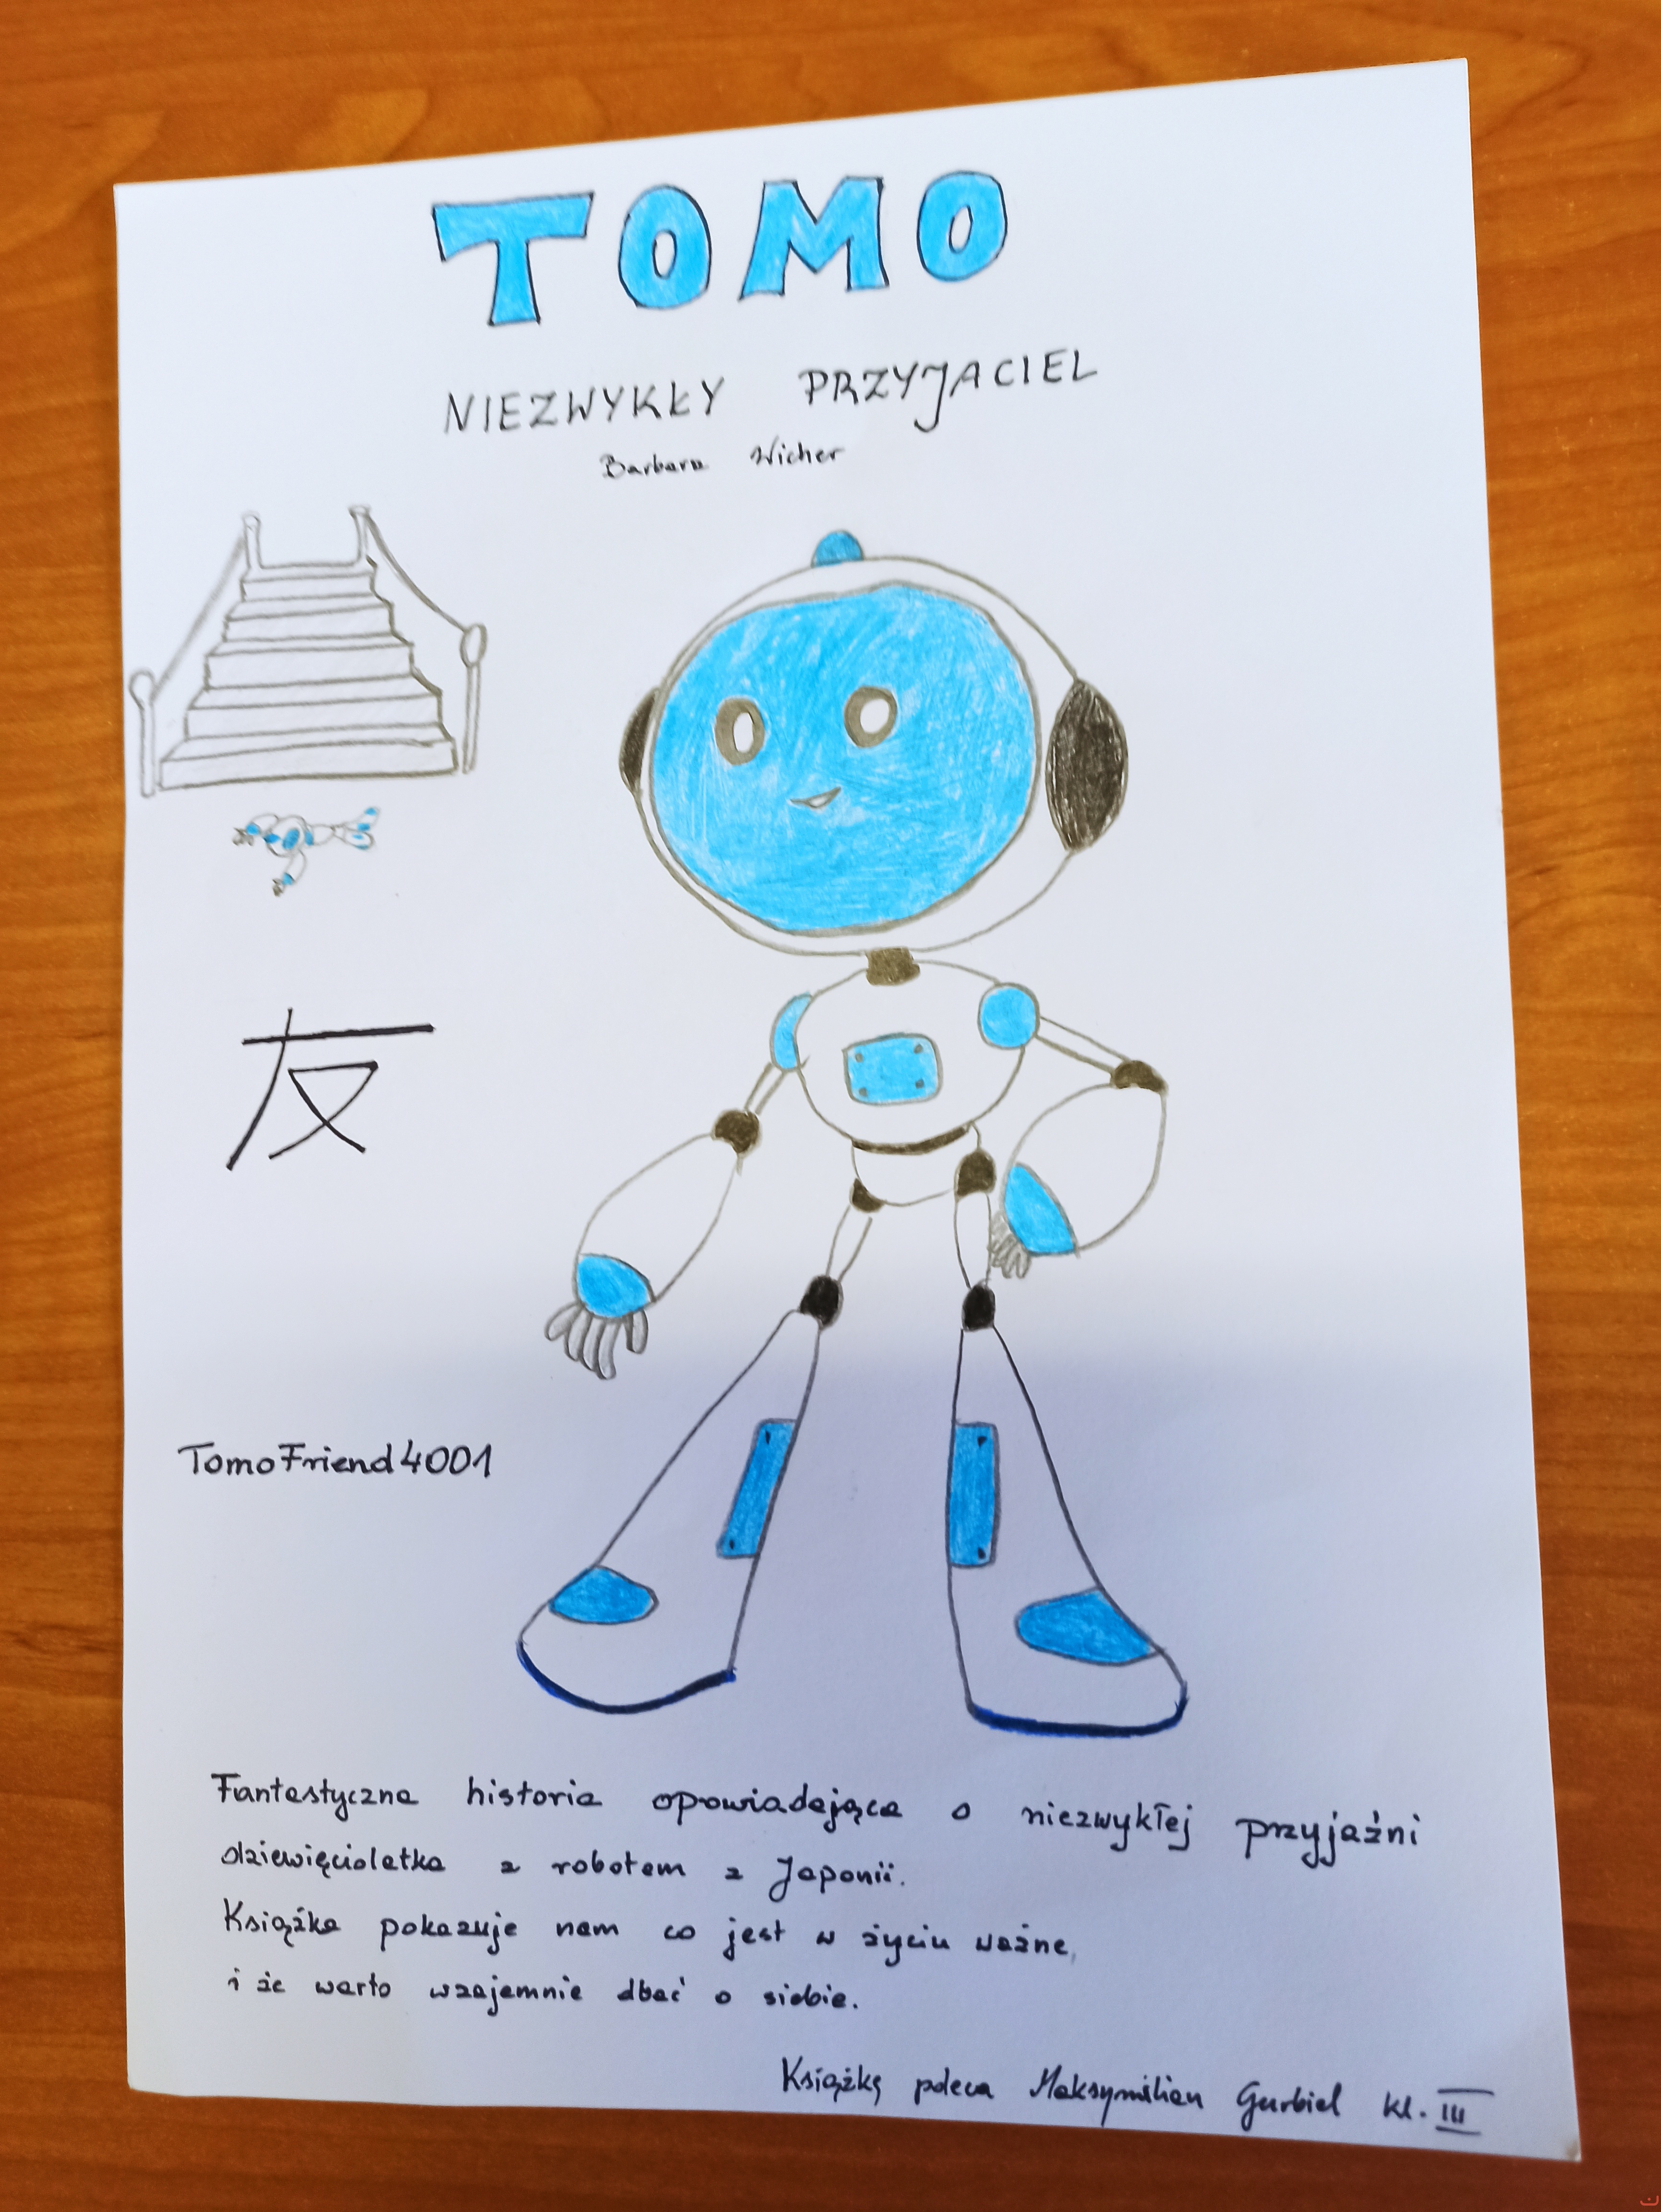 TOMO
NIEZWYKŁY PRZYJACIEL
Barbara Wicher
友
TomoFriend4001
Fantastyczna historia opowiadająca o niezwykłej przyjaźni
dziewięciolatka z robotem z Japonii.
Książka pokazuje nam co jest w życiu ważne,
i że warto wzajemnie dbać o siebie.
Książkę poleca Maksymilian Gurbiel kl. III